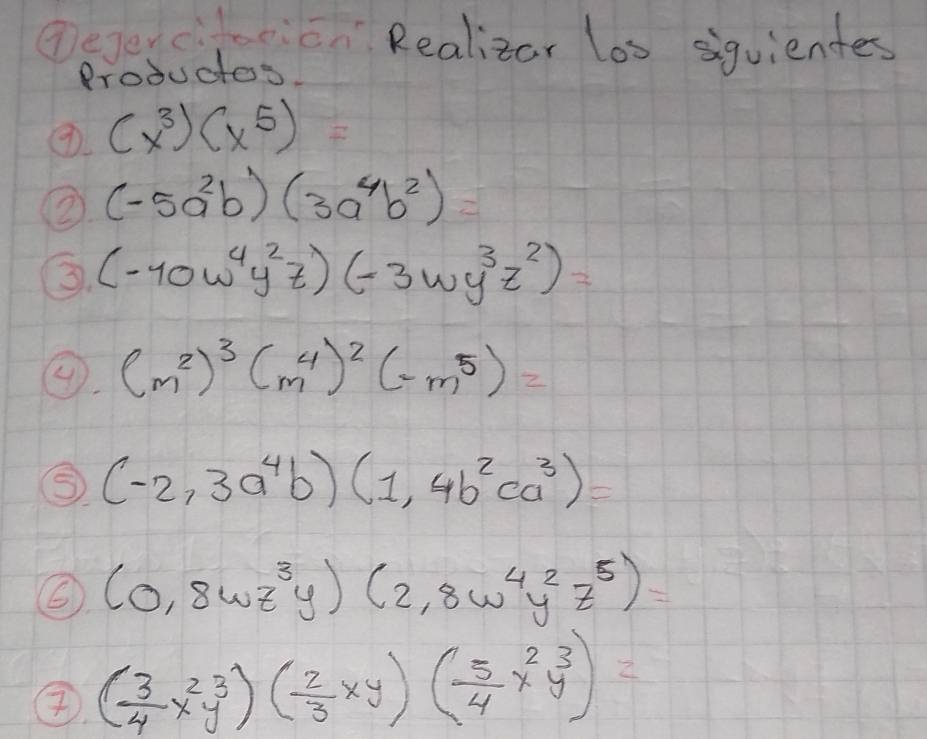 ① ejercitación. Realizar los siguientes
Productos.
①. (x³)(x⁵) =
②. (-5a²b)(3a⁴b²) =
③. (-10w⁴y²z)(-3wy³z²) =
④. (m²)³(m⁴)²(-m⁵) =
⑤. (-2,3a⁴b)(1,4b²ca³) =
⑥. (0,8wz³y)(2,8w⁴y²z⁵) =
⑦. (3/4 x²y³)(2/3 xy)(5/4 x²y³) =